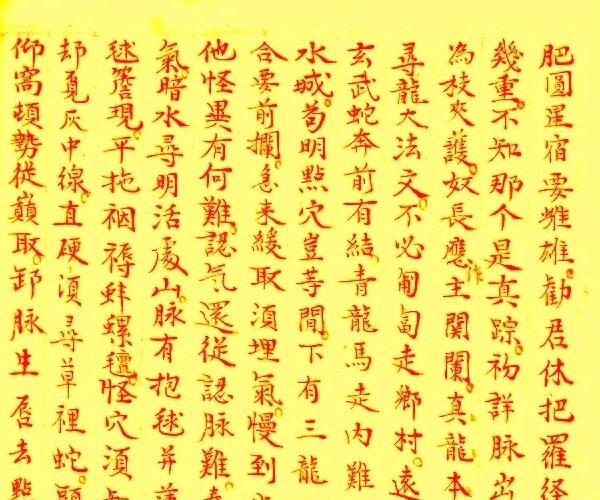 肥圓星宿要雌雄勸君休把羅經
幾重不知那个是真踪初詳脉出
為枝夾護奴長應作主関闌真龍本
尋龍大法文不必匍匐走鄉村遠
玄武蛇奔前有結青龍馬走内難
水城苟明點穴豈等閒下有三龍
合要前攔急来緩取須埋氣慢到
他怪異有何難認氣還從認脉難
氣暗水尋明活處山脉有抱毬并
毬簷現平拖裀褥蚌螺𤮾怪穴須
却覓灰中線直硬須尋草裡蛇頭
仰窩頓勢從巔取卸脉生唇去點